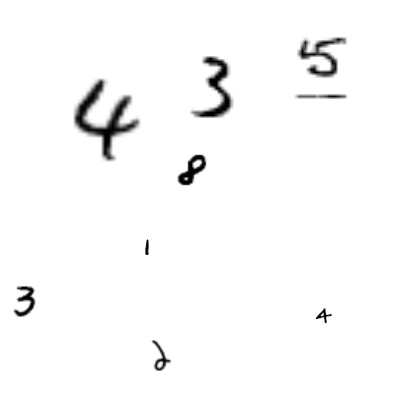 4 3 5
8
1
3 4
2